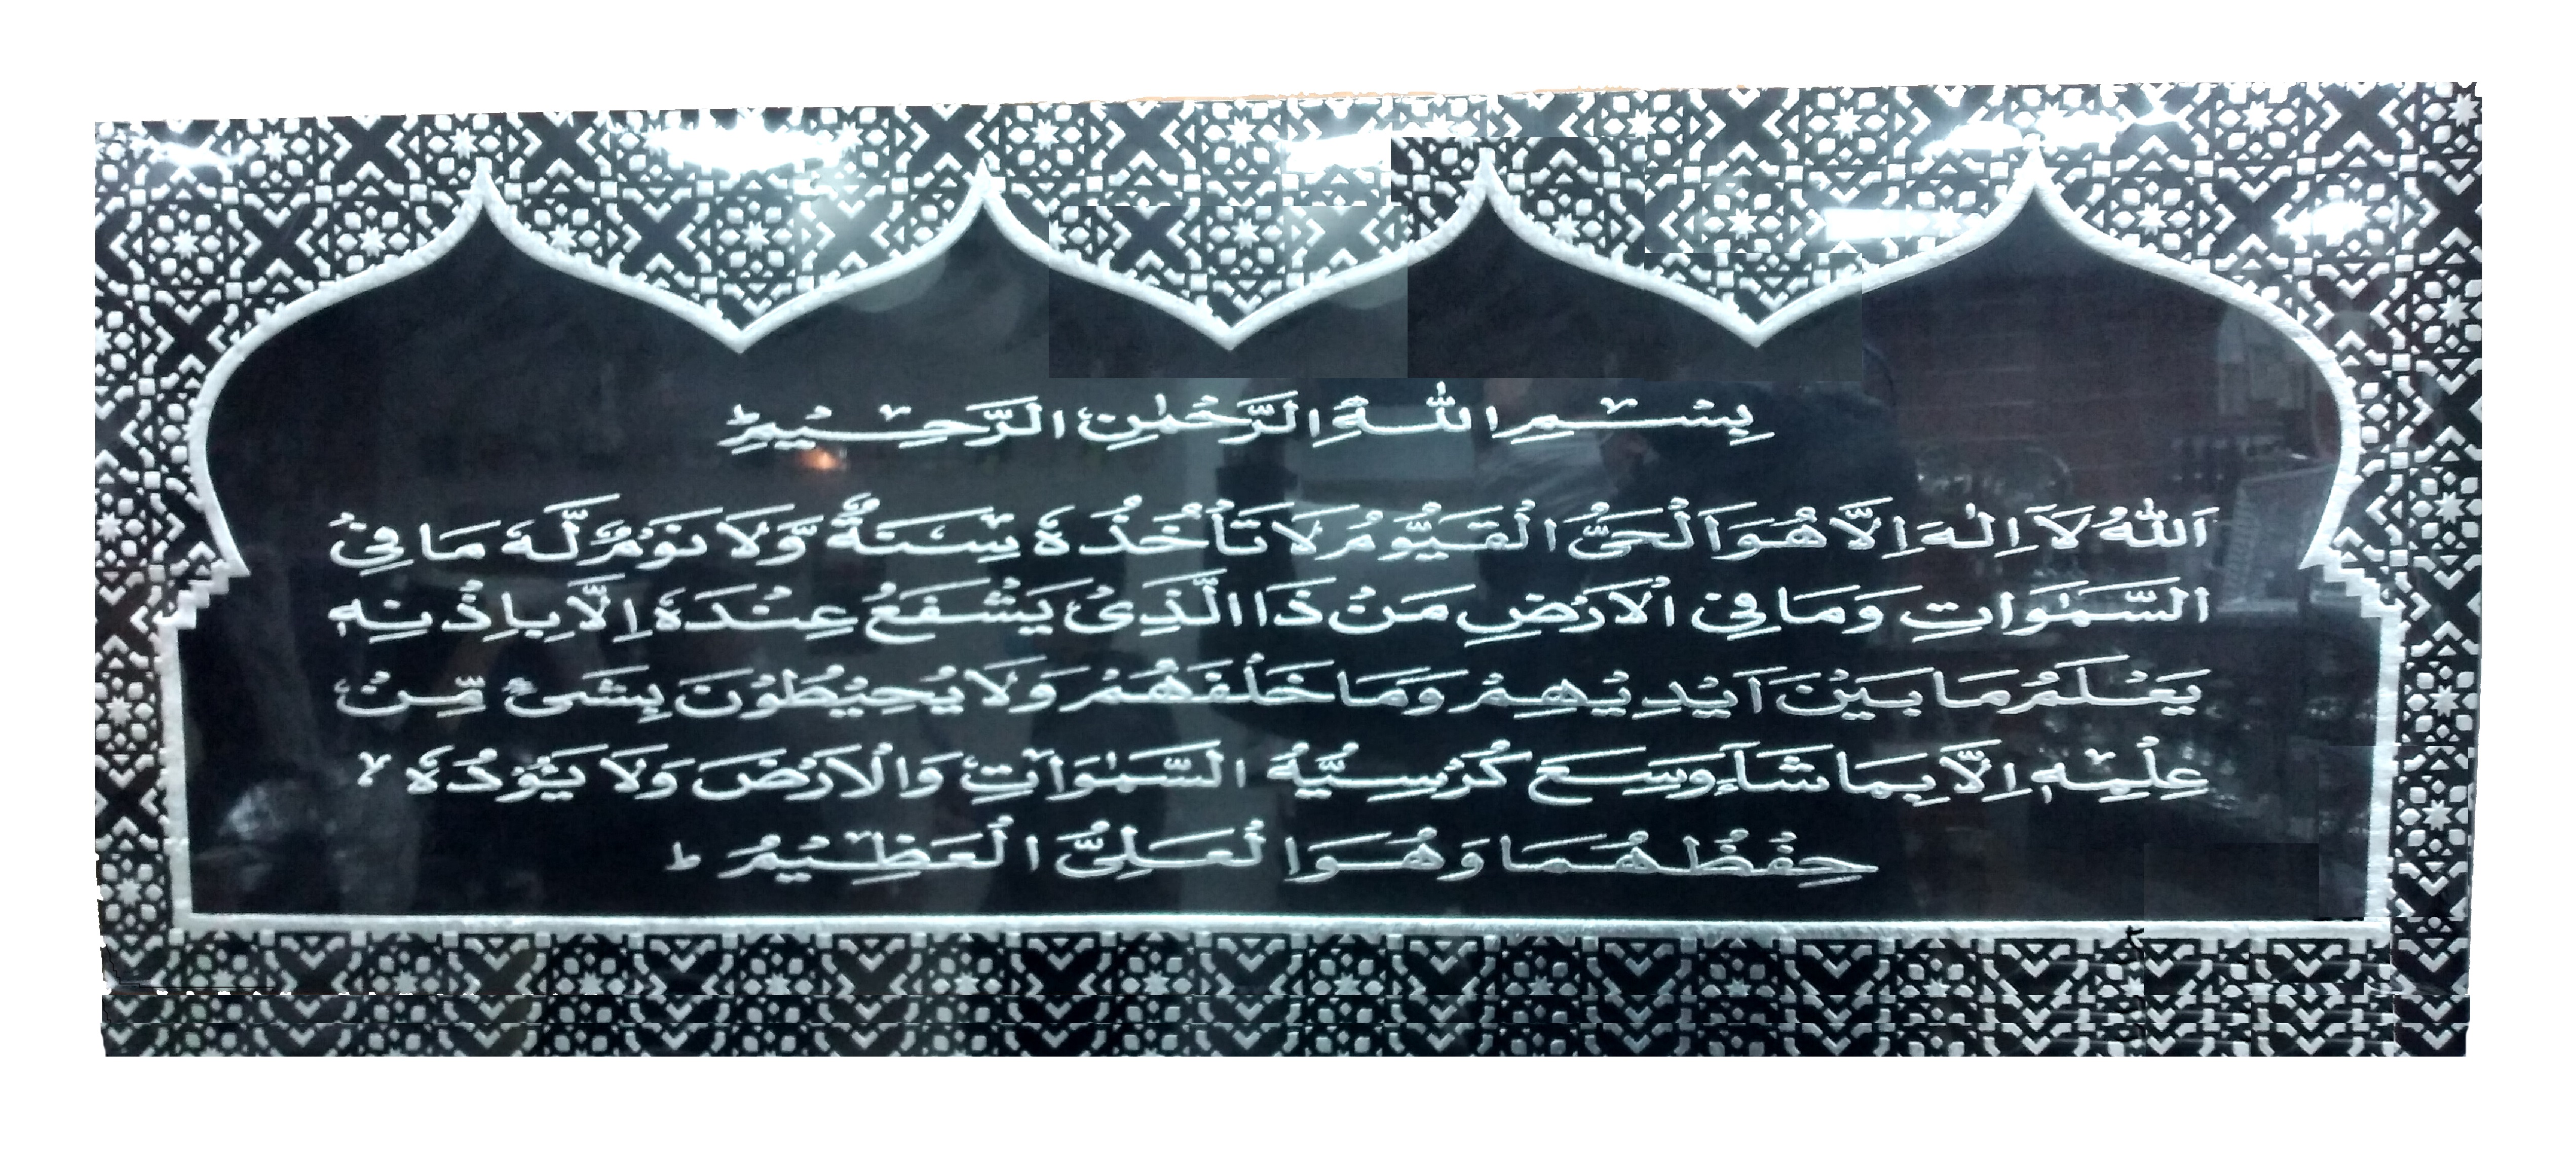 بِسْمِ اللهِ الرَّحْمٰنِ الرَّحِيْمِ ط
اَللهُ لَآ اِلٰهَ اِلَّا هُوَ اَلْحَىُّ الْقَيُّوْمُ لَا تَاْخُذُهٗ سِنَةٌ وَّلَا نَوْمٌ لَّهٗ مَا فِىْ
السَّمٰوَاتِ وَمَا فِىْ الْاَرْضِ مَنْ ذَا الَّذِىْ يَشْفَعُ عِنْدَهٗ اِلَّا بِاِذْنِهٖ
يَعْلَمُ مَا بَيْنَ اَيْدِيْهِمْ وَمَا خَلْفَهُمْ وَلَا يُحِيْطُوْنَ بِشَىْءٍ مِّنْ
عِلْمِهٖ اِلَّا بِمَا شَآءَ وَسِعَ كُرْسِيُّهُ السَّمٰوَاتِ وَالْاَرْضَ وَلَا يَئُوْدُهٗ لا
حِفْظُهُمَا وَهُوَ الْعَلِىُّ الْعَظِيْمُ ط